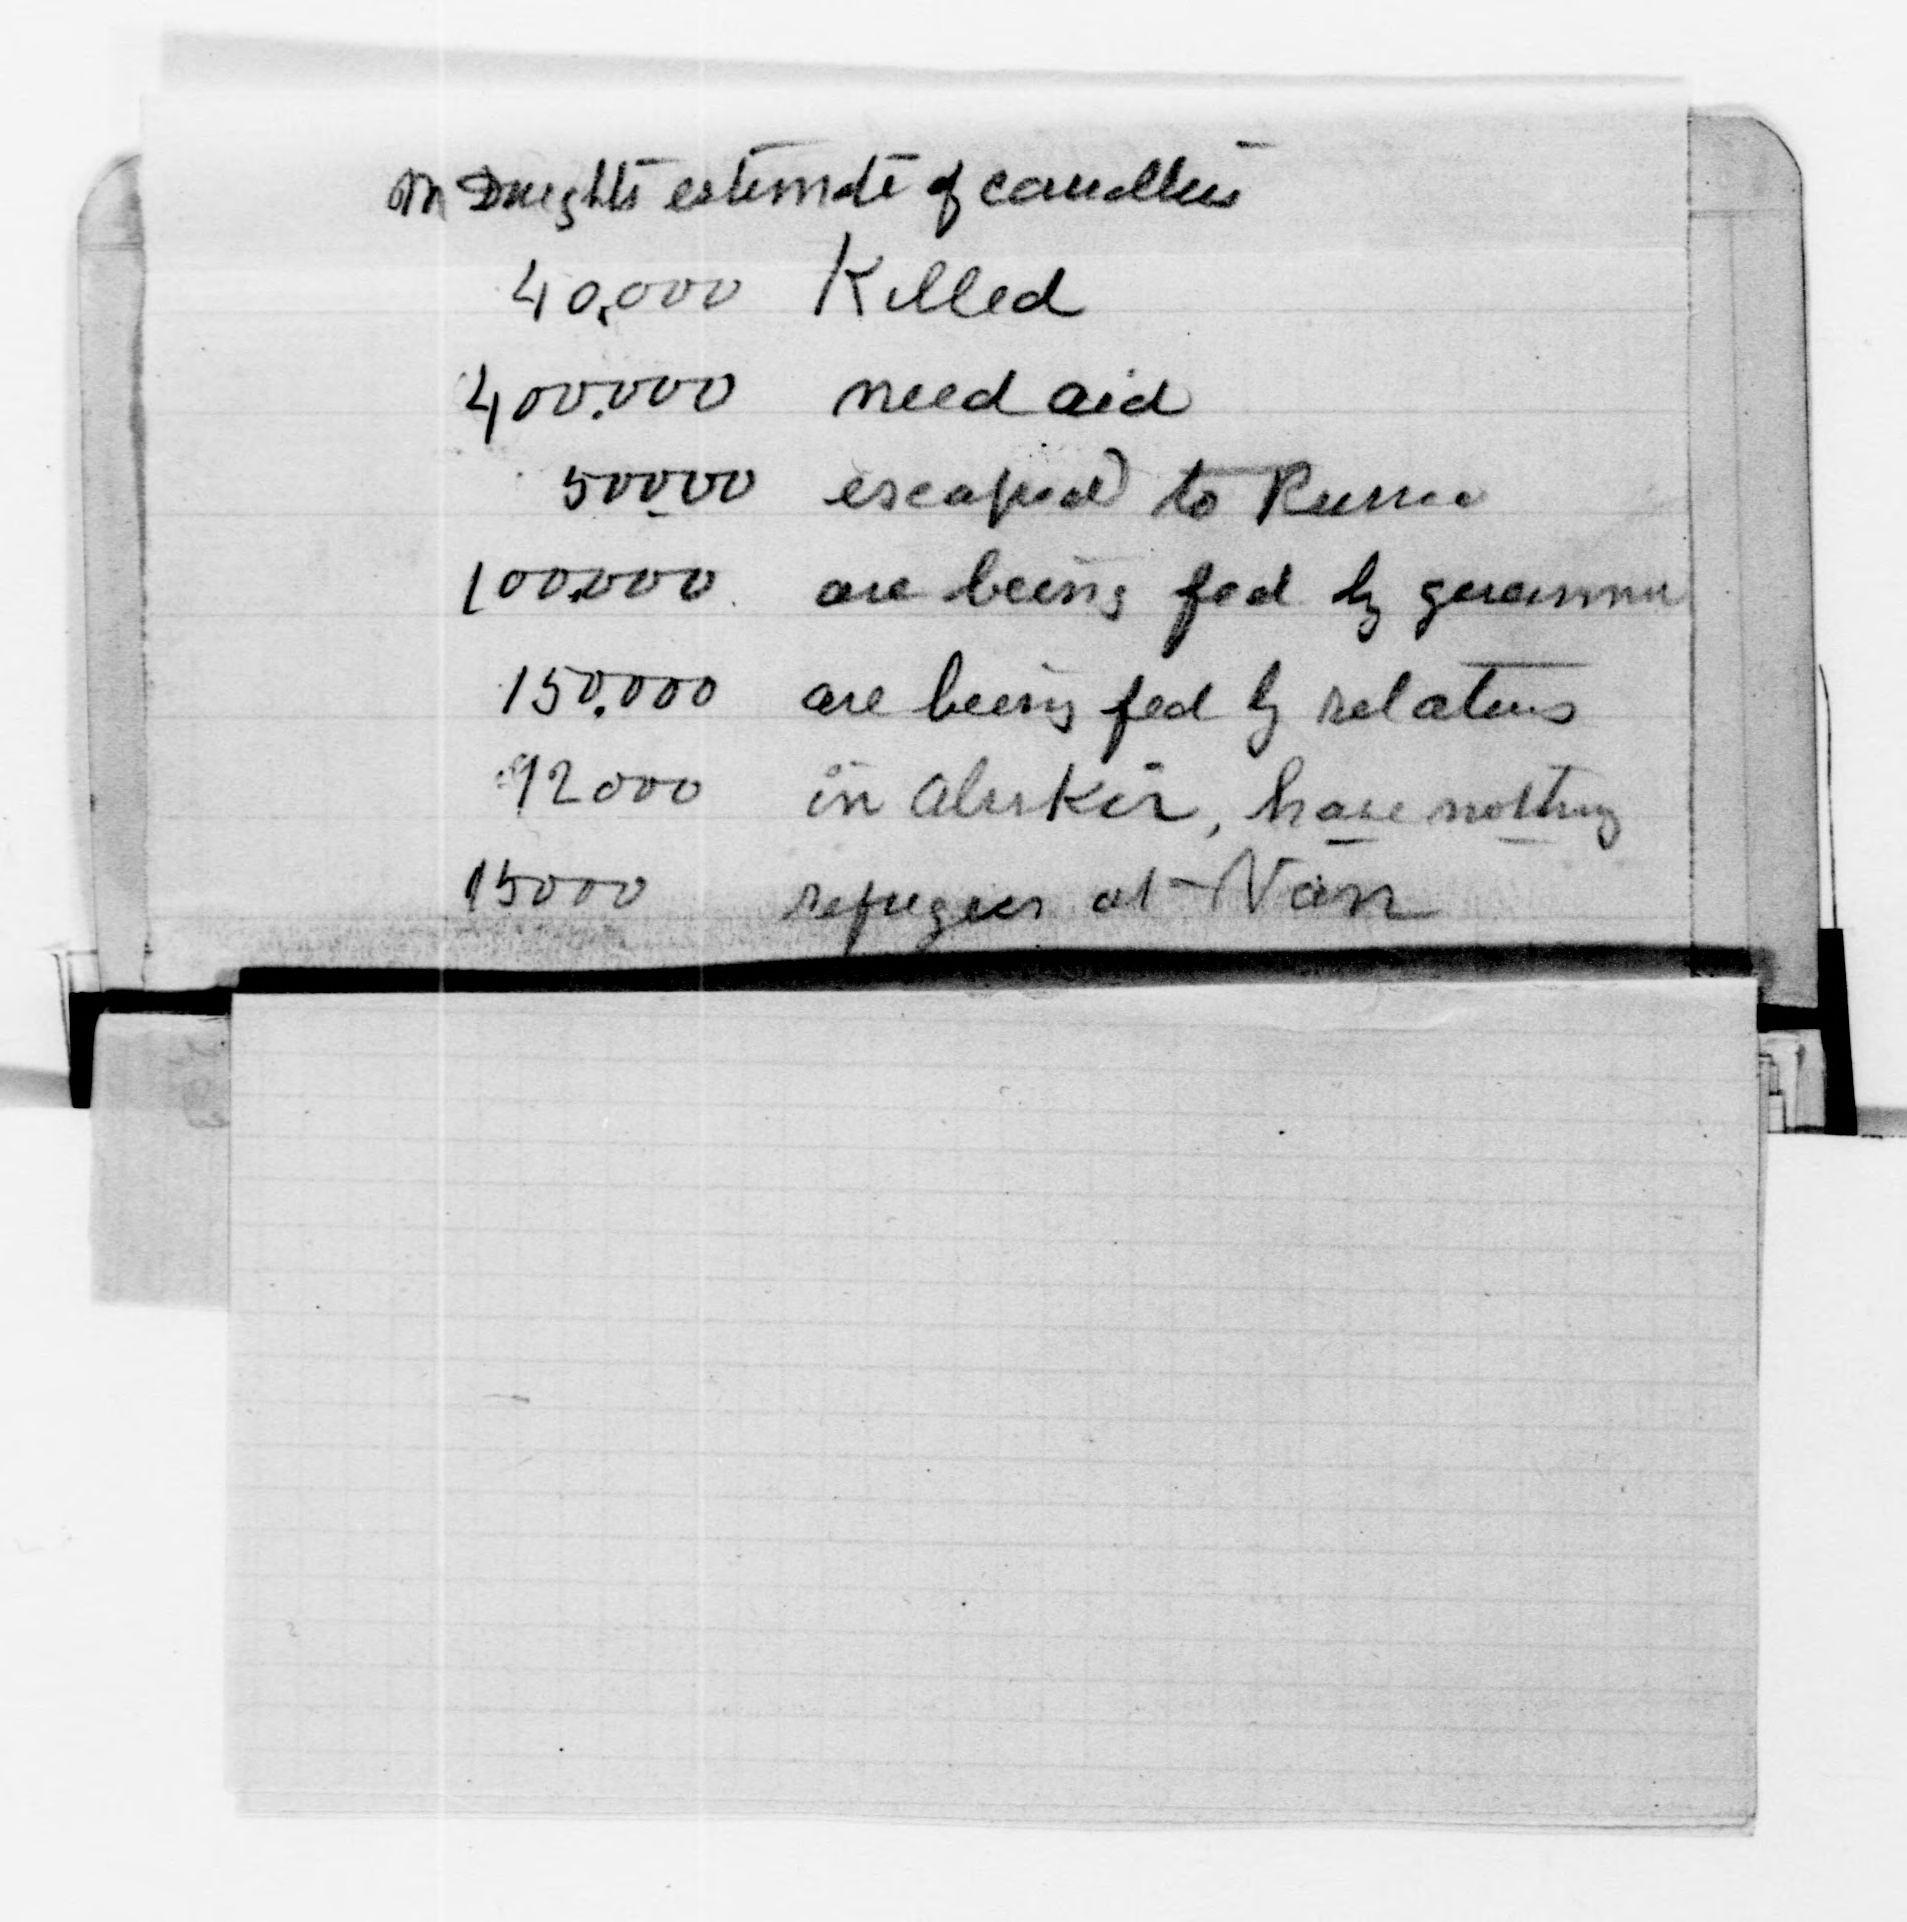 Mr Dwight's estimate of casualties
40,000 Killed
400,000 need aid
50000 escaped to Russia
100,000 are being fed by
150,000 are being fed by relatives
12000 in Aluskir, have nothing
15000 refugees at Van